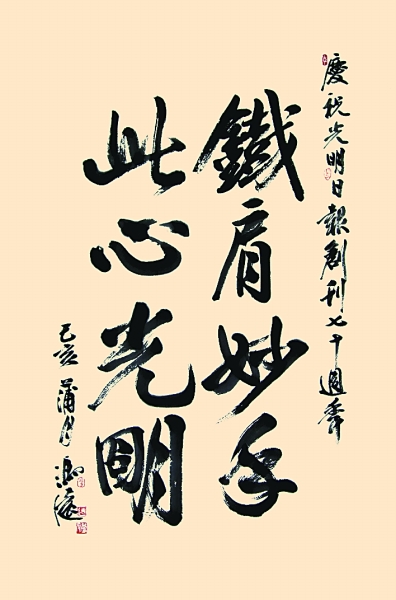 慶祝光明日報創刊七十週年
鐵肩妙手
此心光明
己亥蒲月馮遠